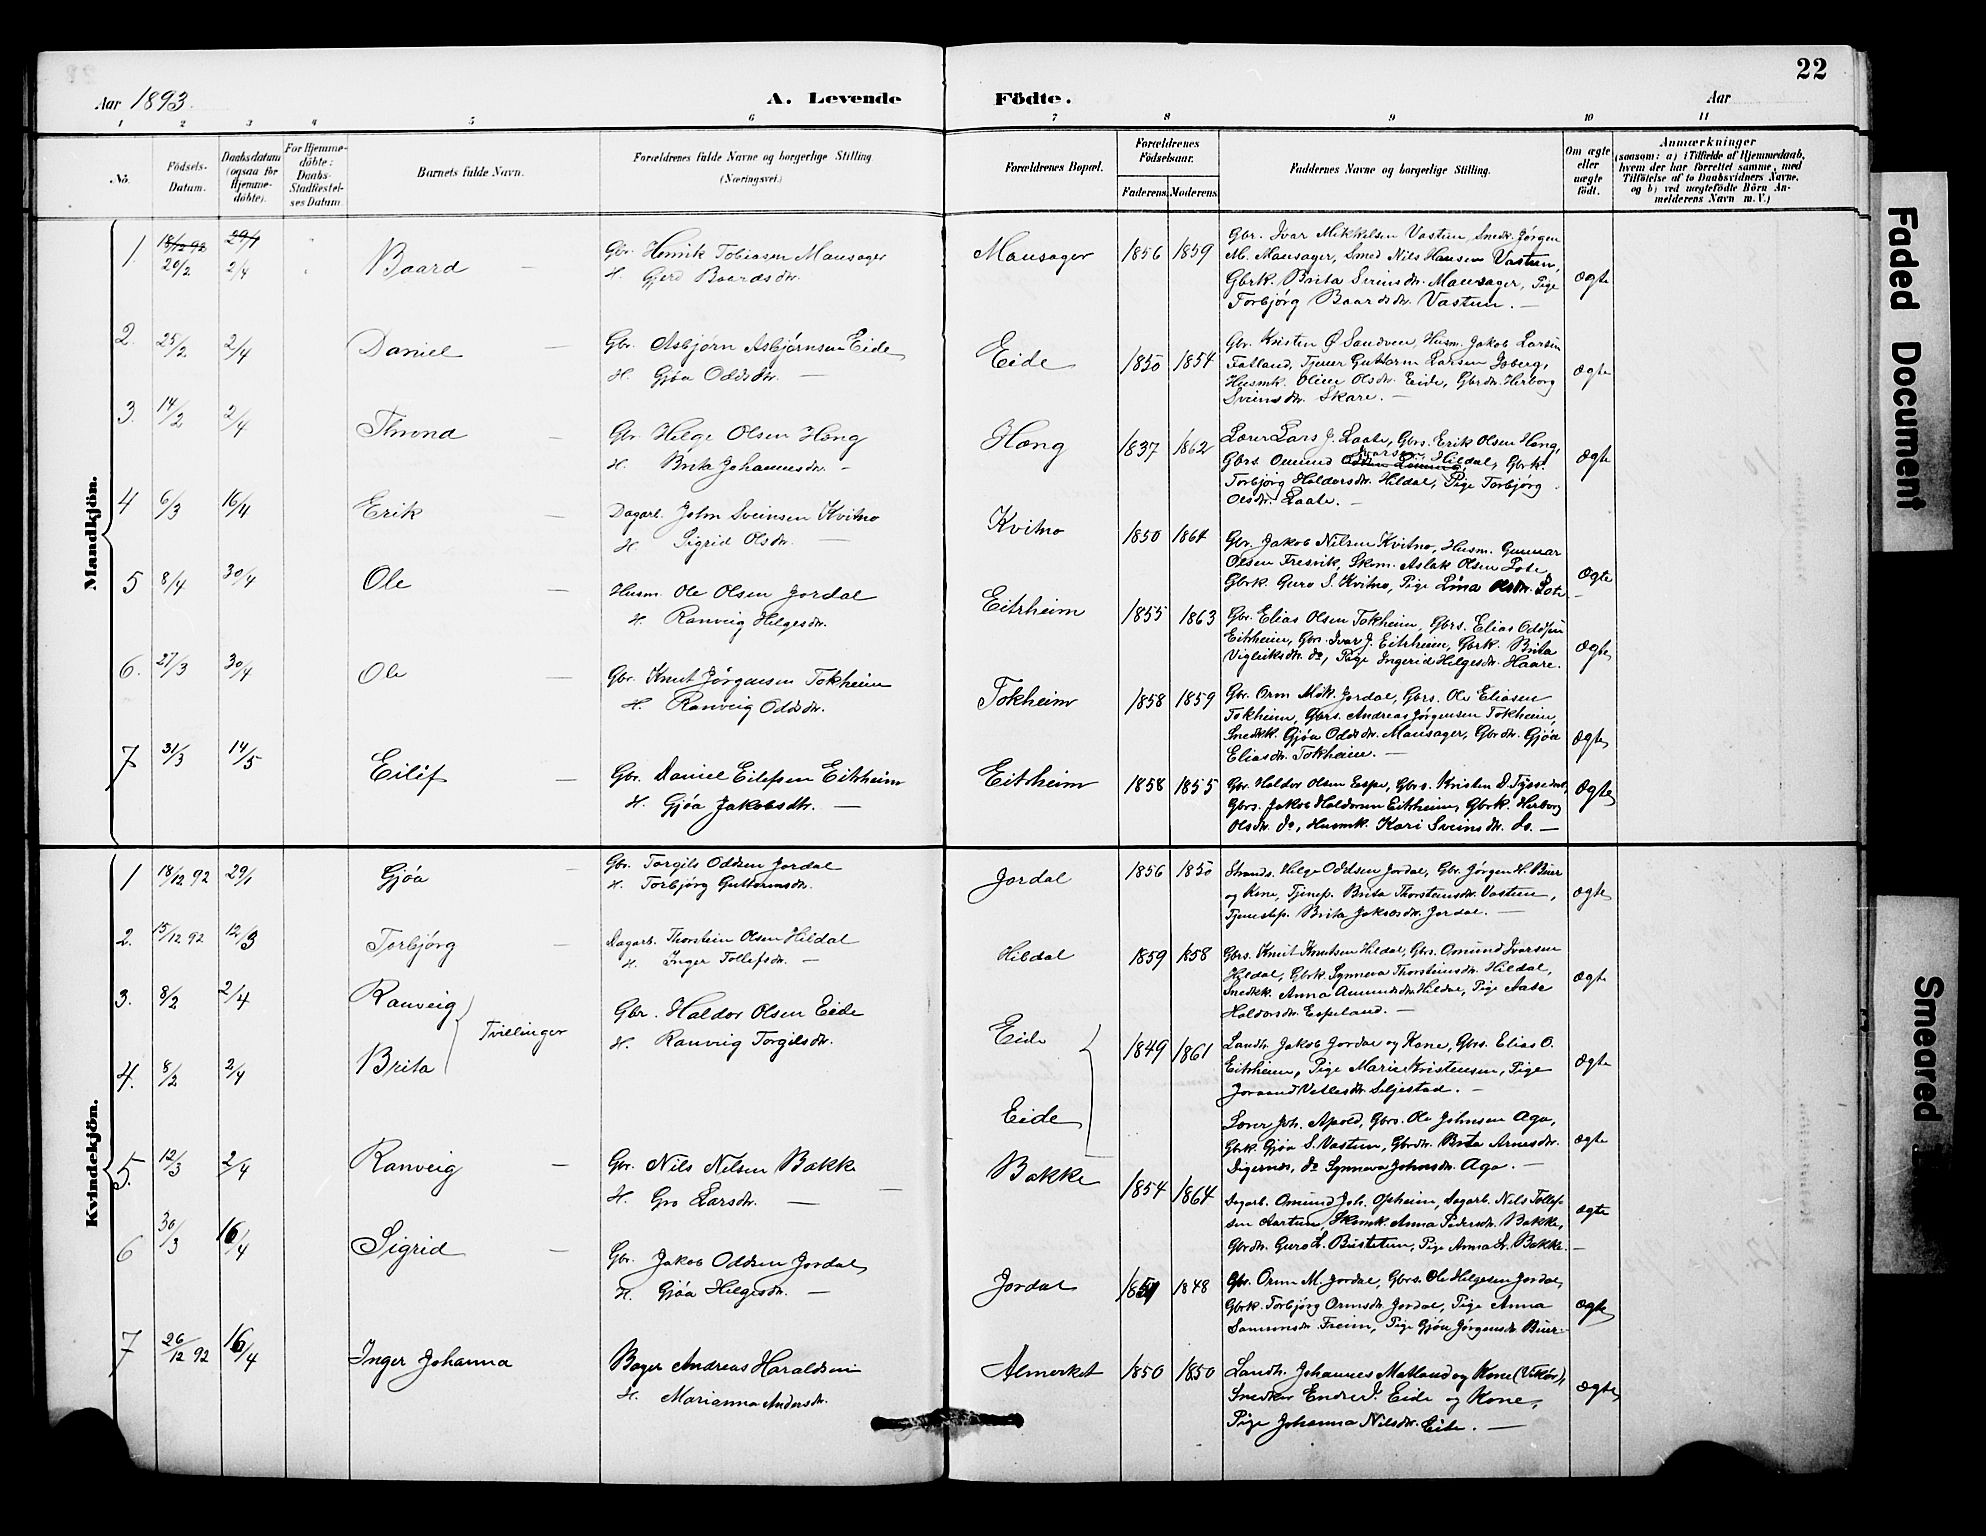 22
Aar 1893.
A. Levende Födte.
Aar
1 2 3 4 5 6 7 8 9 10 11
No.
Födsels-Datum.
Daabsdatum (ogsaa for Hjemme-döbte).
For Hjemme-döbte: Daabs-Stadfæstel-ses Datum
Barnets fulde Navn.
Forældrenes fulde Navne og borgerlige Stilling (Næringsvei.)
Forældrenes Bopæl.
Forældrenes Födselsaar.
Faderens. Moderens.
Faddernes Navne og borgerlige Stilling.
Om ægte eller uægte födt.
Anmærkninger
(saasom: a) i Tilfælde af Hjemmedaab,
hvem der har forrettet samme, med
Tilföielse af to Daabsvidners Navne,
og b) ved uægtefödte Börn An-
melderens Navn m. V.)
Mandkjön.
1 18/12 92 29/1
20/2 2/4 Baard
Gbr. Henrik Tobiasen Mausager
H. Gjerd Baardsdtr.
Mausager 1856 1859
Gbr. Ivar Mikkelsen Vastun, Smed Jörgen
M. Mausager, Smed Nils Hansen Vastun,
Gbrk. Brita Sveinsdtr. Mausager, Pige
Torbjörg Baardsdtr. Vastun. —
Ægte
2. 25/2 2/4 Daniel
Gbr. Asbjørn Asbjørnsen Eide
H. Gjøa Oddsdtr. —
Eide 1850 1854
Gbr. Kristen Ø. Sandven, Husm. Jakob Larsen
Fatland, Tjener Guttorm Larsen Joberg,
Husmk. Oline Olsdtr. Eide, Gbrdtr. Herborg
Sveinsdtr. Skare. —
Ægte
3. 14/2 2/4 Thrond
Gbr. Helge Olsen Hæng
H. Brita Johannesdtr. —
Hæng 1837 1862
Lærer Lars J. Laate, Gbrs. Erik Olsen Hæng,
Gbrs. Omund Ivarsen Hildal, Gbrk.
Torbjörg Haldorsdtr. Hildal, Pige Torbjörg
Olsdtr. Laate. —
Ægte
4 6/3 16/4 Erik
Dagarb. John Sveinsen Kvitno
H. Sigrid Olsdtr. —
Kvitno 1850 1864
Gbr. Jakob Nilsen Kvitno, Husm. Gunnar
Olsen Fresvik, Skom. Aslak Olsen Lote,
Gbrk. Guro S. Kvitno, Pige Lina Olsdtr. Lote
Ægte
5 8/4 30/4 Ole
Husm. Ole Olsen Jordal
H. Ranveig Helgesdtr.
Eitrheim 1855 1863
Gbr. Elias Olsen Tokheim, Gbrs. Elias Oddsen
Eitrheim, Gbr. Ivar J. Eitrheim, Gbrk. Brita
Vigleiksdtr. do, Pige Ingerid Helgesdtr. Haare.
Ægte
6. 27/3 30/4 Ole
Gbr. Knut Jørgensen Tokheim
H. Ranveig Oddsdtr.
Tokheim 1858 1859
Gbr. Orm Mik. Jordal, Gbrs. Ole Eliasen
Tokheim, Gbrs. Andreas Jørgensen Tokheim,
Smedkk. Gjøa Oddsdtr. Mausager, Gbrdtr. Gjøa
Eliasdtr. Tokheim. —
Ægte
7 31/3 14/5 Eilif
Gbr. Daniel Eilefsen Eitrheim
H. Gjøa Jakobsdtr. —
Eitrheim 1858 1855
Gbr. Haldor Olsen Espe, Gbrs. Kristen D. Tyssedal,
Gbrs. Jakob Haldorsen Eitrheim, Gbrk. Herborg
Olsdtr. do, Husmk. Kari Sveinsdtr. do. —
Ægte
Kvindekjön.
1 18/12 92 29/1 Gjøa
Gbr. Torgils Oddsen Jordal
H. Torbjörg Guttormsdtr.
Jordal 1856 1850
Strands. Helge Oddsen Jordal, Gbr. Jörgen H. Buer
og Kone, Tjenep. Brita Thorsteinsdtr. Vastun,
Tjenestep. Brita Jakobsdtr. Jordal. —
Ægte
2. 15/12 92 12/3 Torbjörg
Dagarb. Thorstein Olsen Hildal
H. Inger Tollefsdtr. —
Hildal 1859 1858
Gbrs. Knut Knutsen Hildal, Gbrs. Omund Ivarsen
Hildal, Gbrk. Synneva Thorsteinsdtr. Hildal,
Snedkk. Anna Amundsdtr. Hildal, Pige Aase
Haldorsdtr. Espeland. —
Ægte
3. 8/2 2/4 Ranveig
Tvillinger
4. 8/2 2/4 Brita
Gbr. Haldor Olsen Eide
H. Ranveig Torgilsdtr.
Eide 1849 1861
Landh. Jakob Jordal og Kone, Gbrs. Elias O.
Eitrheim, Pige Marie Kristensen, Pige
Joraand Vetlesdtr. Seljestad. —
Ægte
Eide
Lærer Joh. Apold, Gbrs. Ole Johnsen Aga,
Gbrk. Gjøa S. Vastun, Gbrdtr. Brita Arnesdtr.
Digernes, do Synneva Johnsdtr. Aga. —
Ægte
5. 12/3 2/4 Ranveig
Gbr. Nils Nilsen Bakke
H. Gro Larsdtr. —
Bakke 1854 1864
Dagarb. Omund Joh. Opheim, Dagarb. Nils Tollef-
sen Aartun, Skomk. Anna Pedersdtr. Bakke,
Gbrdtr. Guro L. Bustetun, Pige Anna L. Bakke. —
Ægte
6 30/3 16/4 Sigrid
Gbr. Jakob Oddsen Jordal,
H. Gjøa Helgesdtr. —
Jordal 1851 1848
Gbr. Orm M. Jordal, Gbrs. Ole Helgesen Jordal,
Gbrk. Torbjörg Ormsdtr. Jordal, Pige Anna
Samundsdtr. Freim, Pige Gjøa Jörgensdtr. Buer.
Ægte
7 26/12 92 16/4 Inger Johanna
Bager Andreas Haraldsen
H. Marianna Andersdtr.
Almerket 1850 1850
Landh. Johannes Matland og Kone (Vikör),
Snedker Endre J. Eide og Kone,
Pige Johanna Nilsdtr. Eide. —
Ægte
Faded Document
Smeared